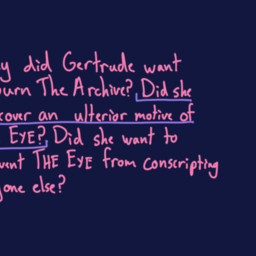 y did Gertrude want
urn The Archive? Did she
cover an ulterior motive of
EYE? Did she want to
vent THE EYE from conscripting
yone else?